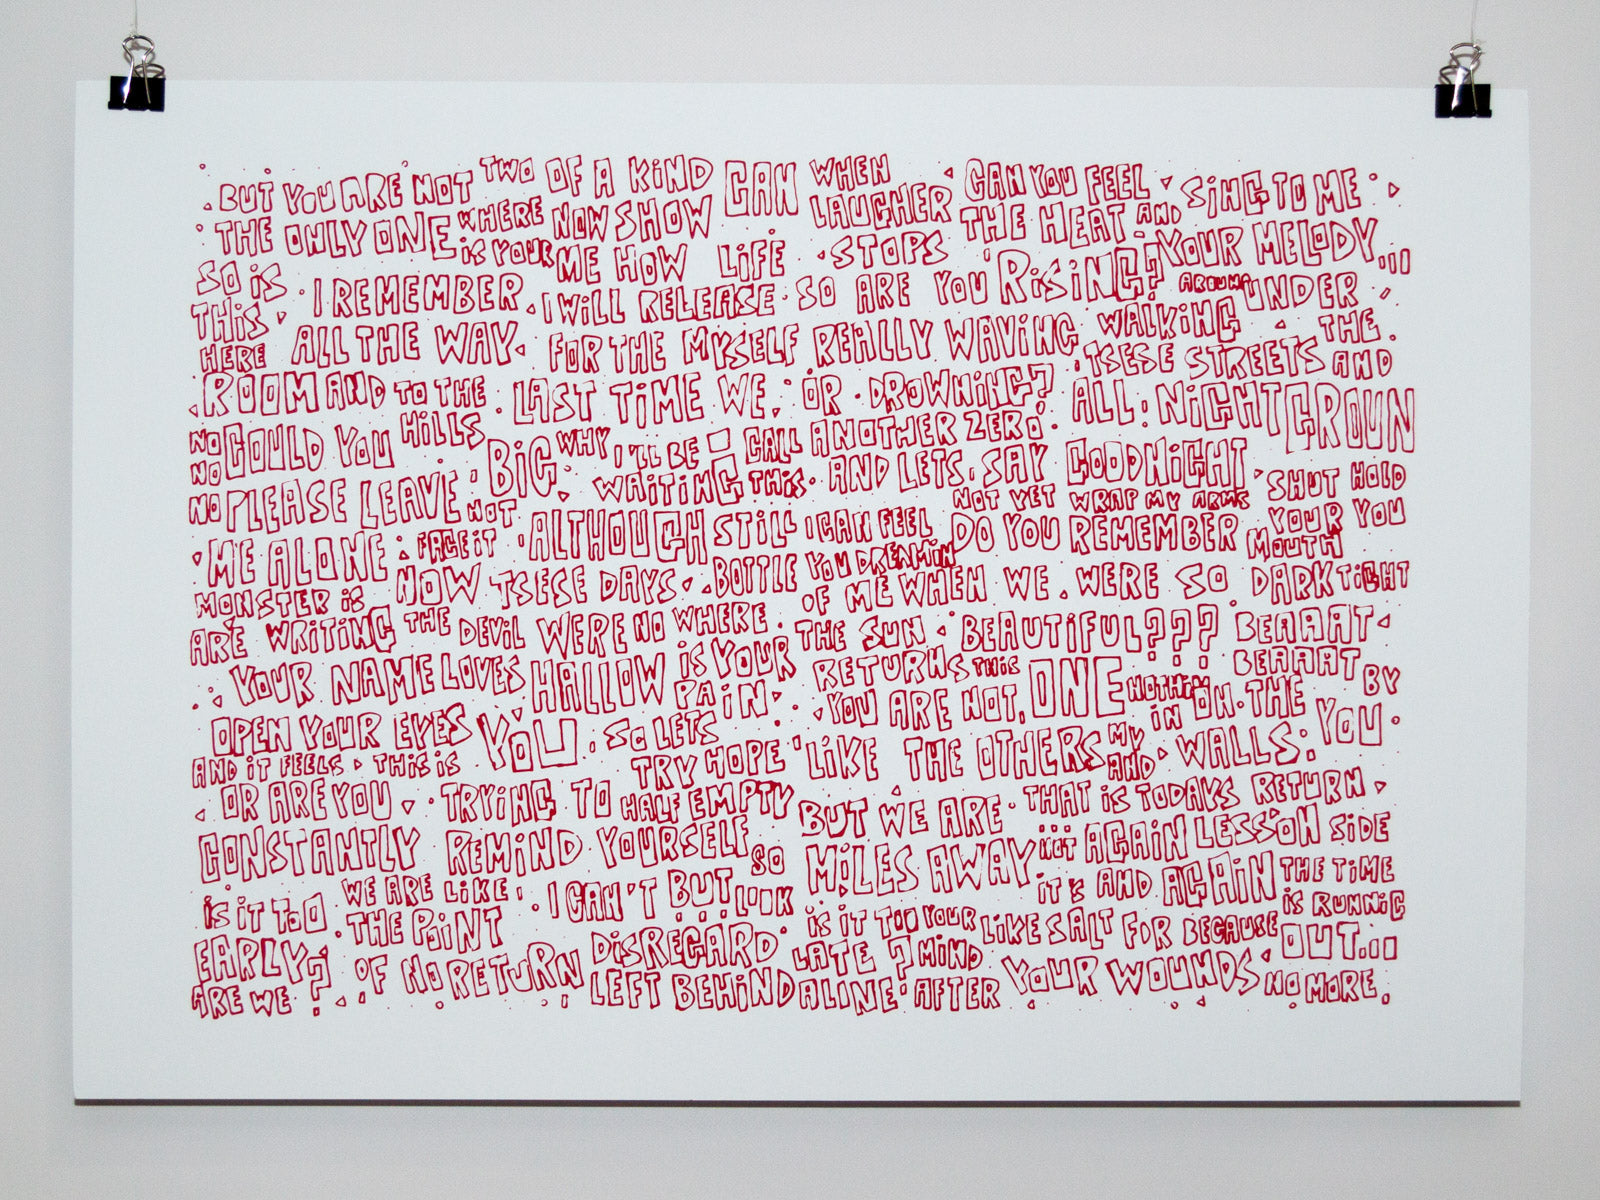 BUT YOU ARE NOT TWO OF A KIND CAN WHEN CAN YOU FEEL SING TO ME
THE ONLY ONE WHERE NOW SHOW LAUGHER THE HEAT AND YOUR MELODY,...
SO IS IS YOUR ME HOW LIFE STOPS YOU RISING? AROUND UNDER
THIS I REMEMBER I WILL RELEASE SO ARE WALKING THE
HERE ALL THE WAY FOR THE MYSELF REALLY WAVING TSESE STREETS AND
ROOM AND TO THE LAST TIME WE. OR DROWNING? ALL. NIGHT GROUN
NO COULD YOU HILLS BIG WHY I'LL BE CALL ANOTHER ZERO.
NO
NO PLEASE LEAVE NOT WAITING THIS AND LETS SAY GOODNIGHT SHUT HOLD
ME ALONE FACE IT ALTHOUGH STILL I CAN FEEL NOT YET WRAP MY ARMS YOUR YOU
MONSTER IS NOW TSESE DAYS BOTTLE YOU DREAMIN DO YOU REMEMBER MOUTH
ARE WRITING THE DEVIL WERE NO WHERE OF ME WHEN WE WERE SO DARK TIGHT
YOUR NAME LOVES HALLOW IS YOUR THE SUN BEAUTIFUL??? BEAAAT
OPEN YOUR EYES YOU PAIN RETURNS THIS ONE NOTHIN BEAAAT BY
AND IT FEELS THIS IS SO LETS YOU ARE NOT, MY IN OH. THE YOU
OR ARE YOU TRYING TO TRY HOPE LIKE THE OTHERS AND WALLS:
CONSTANTLY REMIND HALF EMPTY BUT WE ARE THAT IS TODAYS RETURN
YOURSELF SO MILES AWAY NOT AGAIN LESSON SIDE
IS IT TOO WE ARE LIKE I CAN'T BUT LOOK IT'S AND AGAIN THE TIME
EARLY? THE POINT DISREGARD IS IT TOO YOUR LIKE SALT FOR BECAUSE IS RUNNIG
ARE WE OF NO RETURN LEFT BEHIND LATE? MIND YOUR WOUNDS OUT...
ALINE AFTER NO MORE.